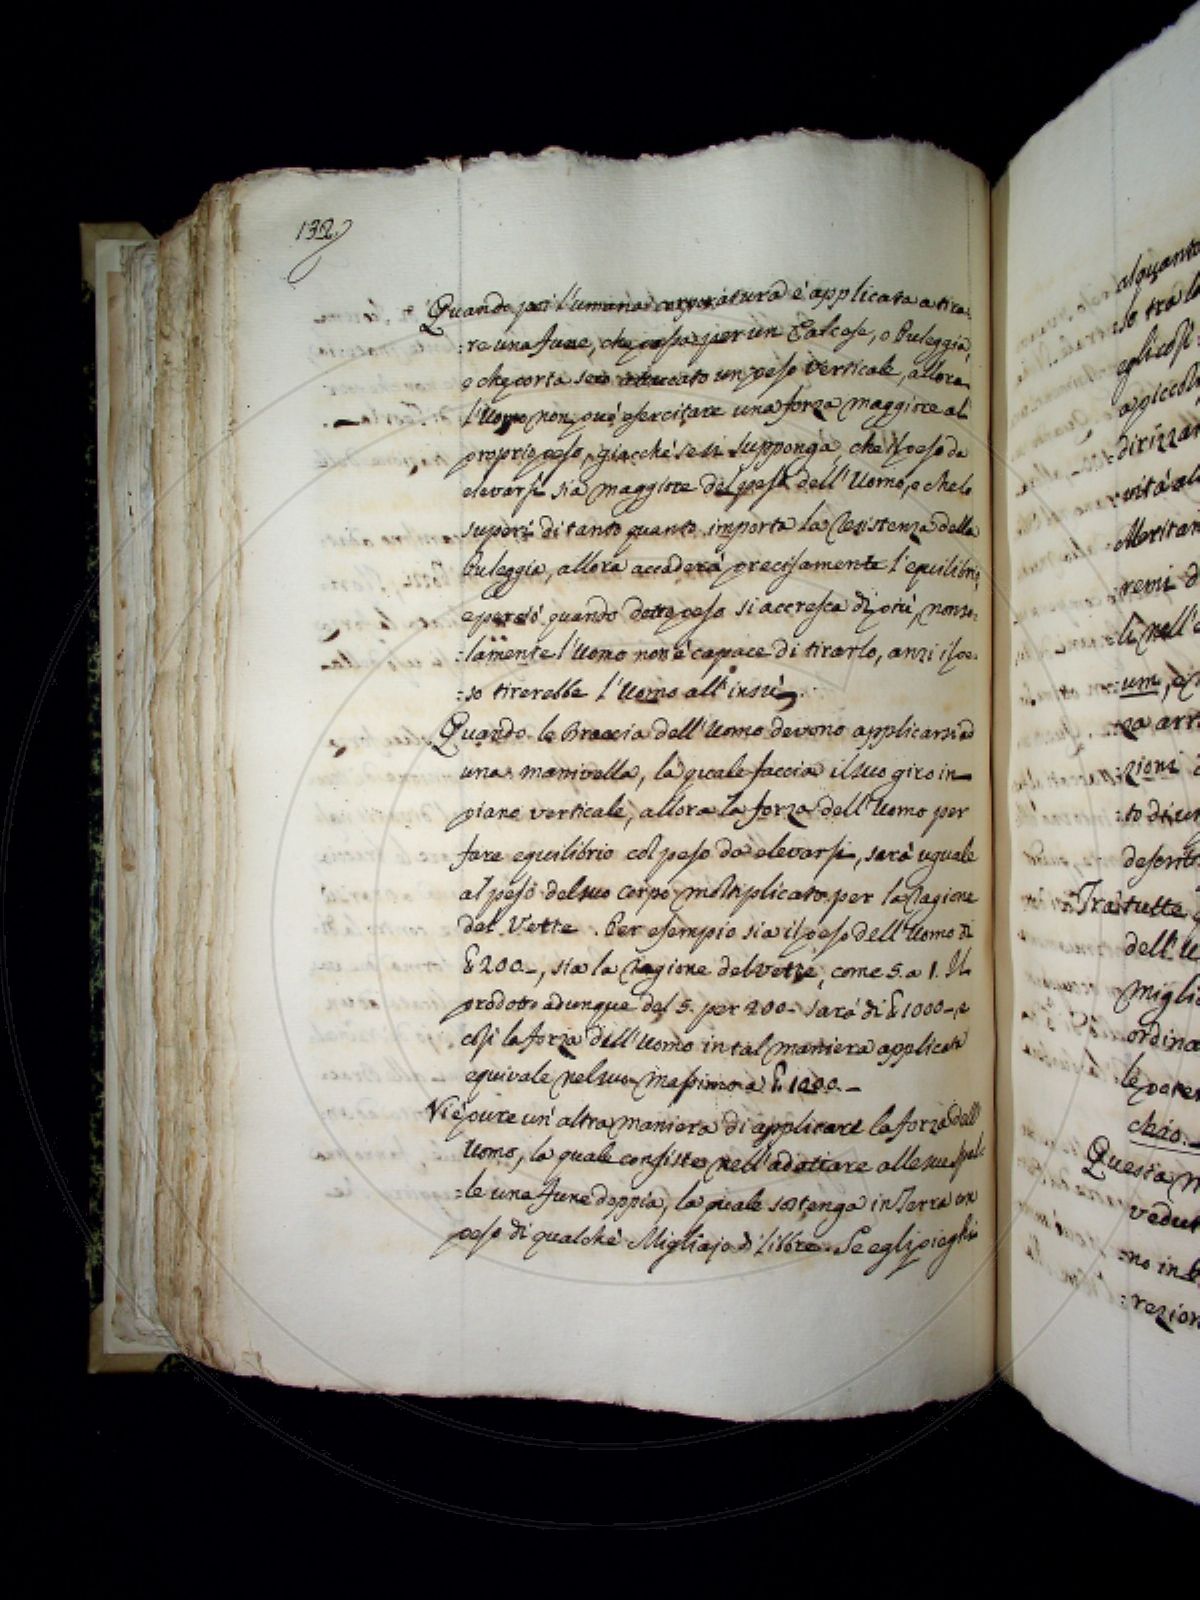 132.
Quando poi l'umana corporatura è applicata a tira-
:re una fune, che passa per un Calcese, o Puleggia,
e che porta seco attaccato un peso verticale, allora
l'Uomo non può esercitare una forza maggiore al
proprio peso, giacchè se si supponga, che il peso da
elevarsi sia maggiore del peso dell'Uomo, e che lo
superi di tanto quanto importa la Resistenza della
Puleggia, allora accaderà precisamente l'equilibrio,
e perciò quando detto peso si accresca di più, non so-
:lamente l'Uomo non è capace di tirarlo, anzi il pe-
:so tirerebbe l'Uomo all'insù.
Quando le Braccia dell'Uomo devono applicarsi ad
una manivella, la quale faccia il suo giro in
piano verticale, allora la forza dell'Uomo per
fare equilibrio col peso da elevarsi, sarà uguale
al peso del suo corpo moltiplicato per la Ragione
del Vette. Per esempio sia il peso dell'Uomo di
£ 200.-, sia la ragione del vette, come 5. a 1. Il
prodotto adunque del 5. per 200.- sarà di £ 1000.-, e
così la forza dell'Uomo in tal maniera applicata
equivale nel suo massimo a £ 1000.-
Vi è pure un'altra maniera di applicare la forza dell'
Uomo, la quale consiste nell'adattare alle sue spal-
:le una fune doppia, la quale sostenga in Terra un
peso di qualchè Migliajo di libbre. Se egli pieghi
alquanto
:so tra la
egli cost
a piccol
dirizzar
:vità al
Meritan
:remi d
li nell'
um, e
:za arr
:zioni
:to di un
descritt
Tra tutte
dell'U
miglio
ordina
le poten
chio.-
Questa m
vedut
:no in
:rezion